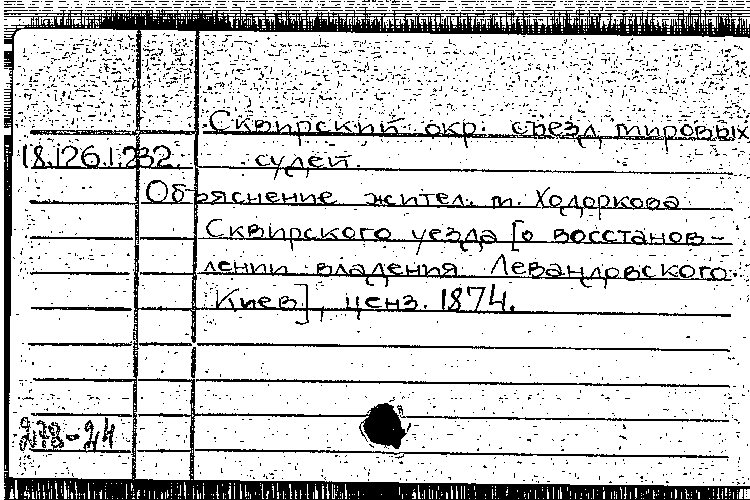 Сквирский окр. съезд мировых
18.126.1.232. судей.
Объяснение жител. м. Ходоркова
Сквирского уезда [о восстанов-
лении владения Левандовского.
Киев], ценз. 1874.
273-24